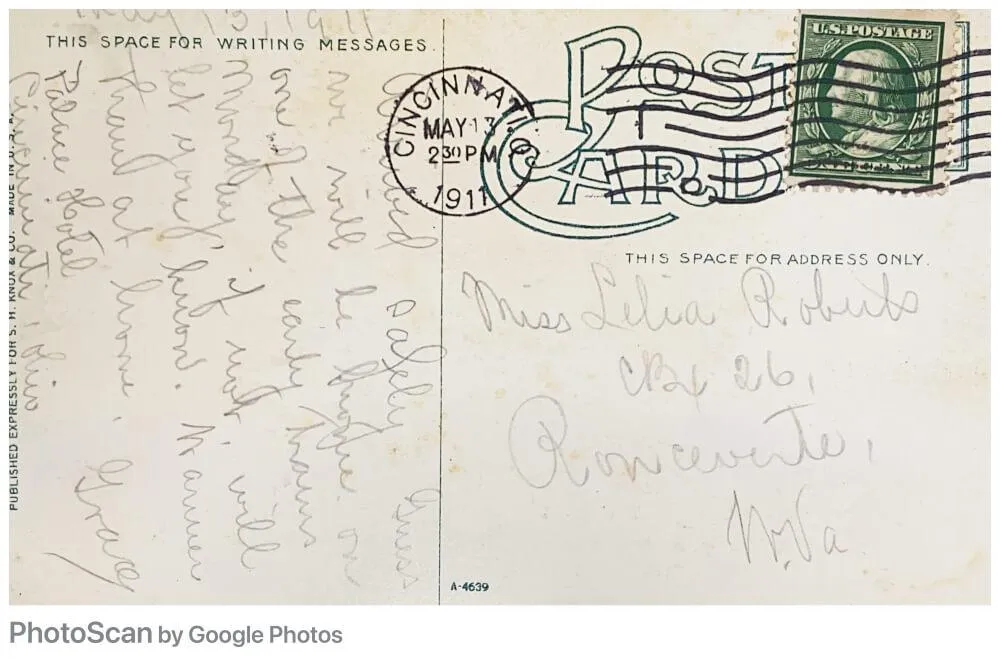 May 13, 1911
THIS SPACE FOR WRITING MESSAGES.
Arrived safely Guess
we will be home on
one of the early trains
Monday, if not, will
let you know. Warmer
than at home. Grace
Palace Hotel
Cincinnati, Ohio
PUBLISHED EXPRESSLY FOR S. H. KNOX & CO. MADE IN U. S. A.
CINCINNATI, O.
MAY 13
2 30 PM
1911
POST CARD
U.S. POSTAGE
THIS SPACE FOR ADDRESS ONLY.
Miss Lelia Roberts
Bx 26,
Ronceverte,
W.Va.
A-4639
PhotoScan by Google Photos